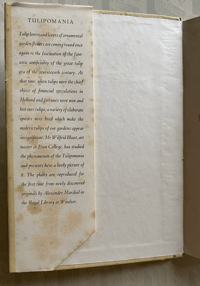 TULIPOMANIA
Tulip lovers and lovers of ornamental
garden flowers are coming round once
again to the fascination of the fan-
tastic artificiality of the great tulip
era of the seventeenth century. At
that time, when tulips were the chief
object of financial speculations in
Holland and fortunes were won and
lost over tulips, a variety of elaborate
species were bred which make the
modern tulips of our gardens appear
insignificant. Mr Wilfrid Blunt, art
master at Eton College, has studied
the phenomenon of the Tulipomania
and presents here a lively picture of
it. The plates are reproduced for
the first time from newly discovered
originals by Alexander Marshal in
the Royal Library at Windsor.